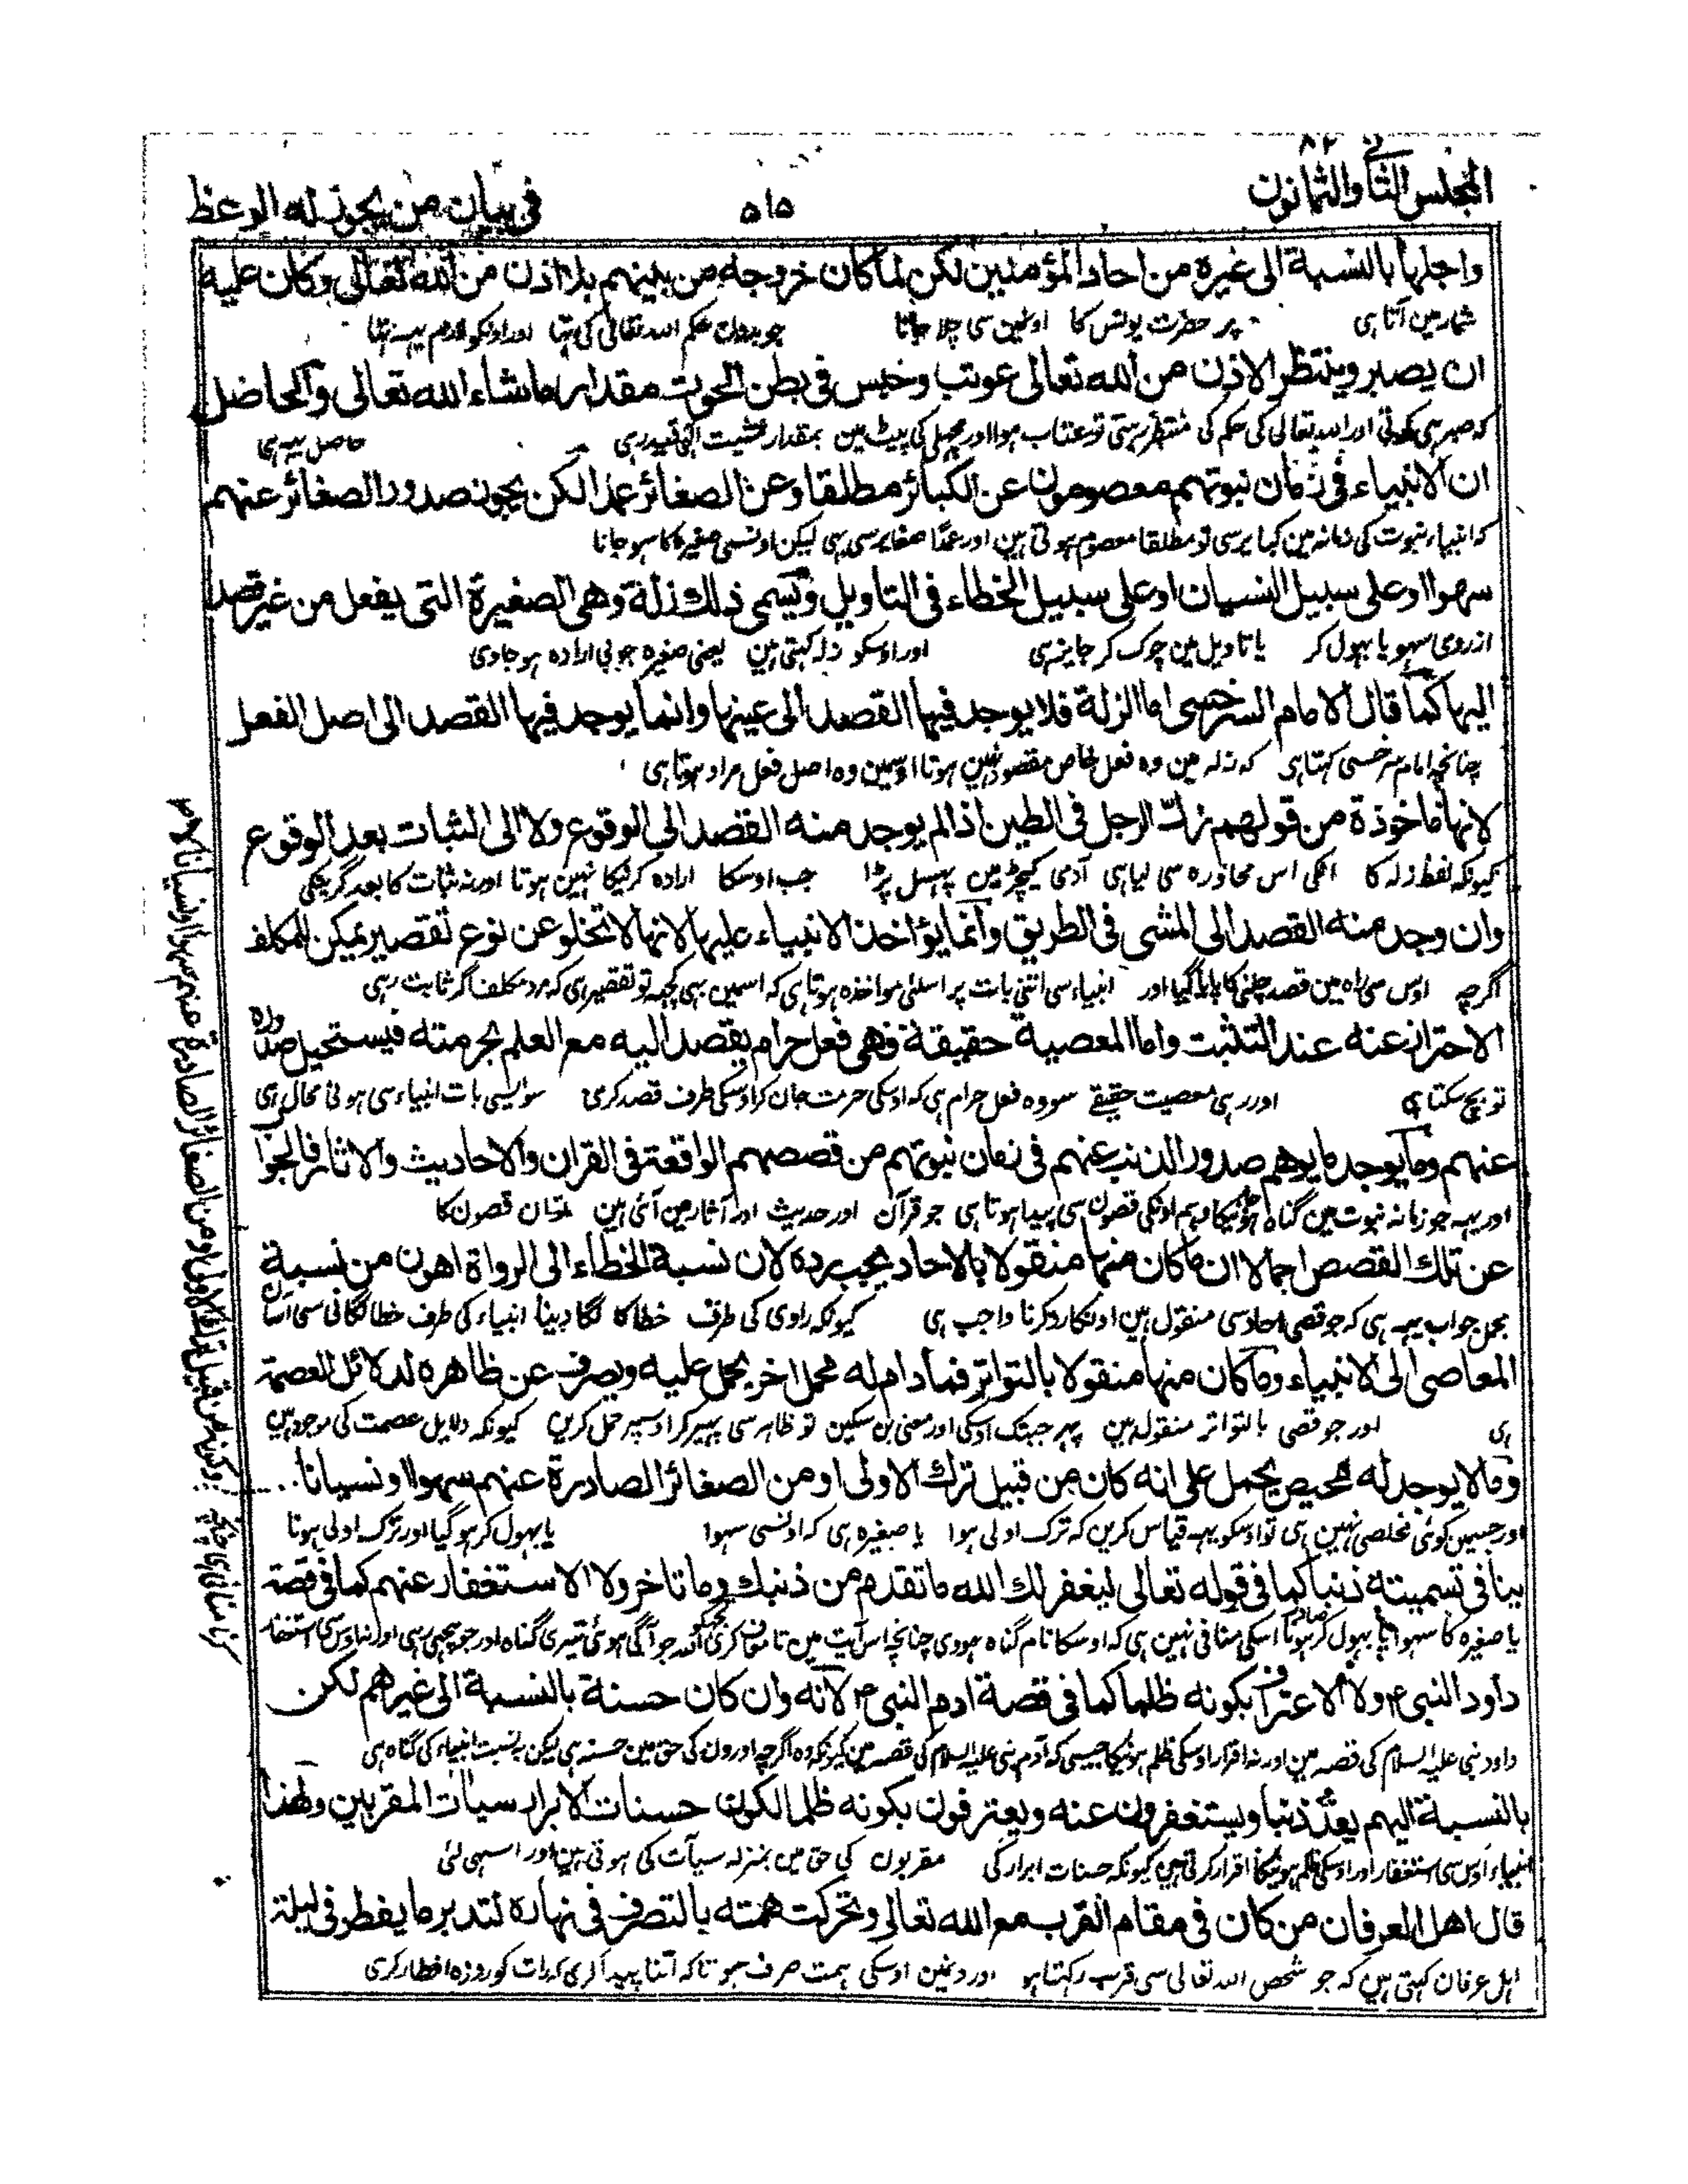 المجلس الثانى والثمانون ٨٢
٥١٥
فى بيان من يجوز له الوعظ
واجلها بالنسبة الى غيره من احاد المؤمنين لكن لما كان خروجه من بينهم بلا اذن من الله تعالى وكان عليه
شمار مین آتا ہی پر حضرت یونس کا اونمین سی چلا جانا جو بدون حکم اللہ تعالی کی تہا اور اونکو لازم یہہ تہا
ان يصبر وينتظر الاذن من الله تعالى عوتب وحبس فى بطن الحوت مقدار ما شاء الله تعالى والحاصل
کہ صبر ہی کرتی اور اللہ تعالی کی حکم کی منتظر رہتی تو عتاب ہوا اور مچہلی کی پیٹ مین بمقدار مشیت الہی قید رہی حاصل یہہ ہی
ان الانبياء فى زمان نبوتهم معصومون عن الكبائر مطلقا وعن الصغائر عمدا لكن يجوز صدور الصغائر عنهم
کہ انبیاء نبوت کی زمانہ مین کبایر سی تو مطلقا معصوم ہوتی ہین اور عمدًا صغایر سی بہی لیکن اونسی صغیرہ کا ہو جانا
سهوا او على سبيل النسيان او على سبيل الخطاء فى التاويل ويسمى ذلك زلة وهى الصغيرة التى يفعل من غير قصد
از روی سہو یا بہول کر یا تاویل مین چوک کر جایز ہی اور اوسکو زلہ کہتی ہین یعنی صغیرہ جو بی ارادہ ہو جاوی
اليها كما قال الامام السرخسى اما الزلة فلا يوجد فيها القصد الى عينها وانما يوجد فيها القصد الى اصل الفعل
چنانچہ امام سرخسی کہتا ہی کہ زلہ مین وہ فعل خاص مقصود نہین ہوتا اوسمین وہ اصل فعل مراد ہوتا ہی
لانها ماخوذة من قولهم زل الرجل فى الطين اذا لم يوجد منه القصد الى الوقوع ولا الى الثبات بعد الوقوع
کیونکہ لفظ زلہ کا انکی اس محاورہ سی لیا ہی آدمی کیچڑ مین پہسل پڑا جب اوسکا ارادہ گرنیکا نہین ہوتا اور نہ ثبات کا بعد گرنیکی
وان وجد منه القصد الى المشى فى الطريق وانما يؤاخذ الانبياء عليها لانها لا تخلو عن نوع تقصير يمكن للمكلف
اگرچہ اوس سی راہ مین قصد چلنی کا پایا گیا اور انبیاء سی اتنی بات پر اسلئی مواخذہ ہوتا ہی کہ اسمین بہی کچہہ تو تقصیر ہی کہ مرد مکلف اگر ثابت رہی
الاحتراز عنه عند التثبت واما المعصية حقيقة فهى فعل حرام يقصد اليه مع العلم بحرمته فيستحيل صدوره
تو بچ سکتا ہی اور رہی معصیت حقیقے سو وہ فعل حرام ہی کہ اوسکی حرمت جان کر اوسکی طرف قصد کری سو ایسی بات انبیاء سی ہونی محال ہی
عنهم وما يوجد ما يوهم صدور الذنب عنهم فى زمان نبوتهم من قصصهم الواقعة فى القران والاحاديث والاثار فالجواب
اور یہہ جو زمانہ نبوت مین گناہ ہونیکا وہم اونکی قصون سی پیدا ہوتا ہی جو قرآن اور حدیث اور آثار مین آئی ہین تو ان قصون کا
عن تلك القصص اجمالا ان ما كان منها منقولا بالاحاد يجب رده لان نسبة الخطاء الى الرواة اهون من نسبة
مجمل جواب یہہ ہی کہ جو قصی احاد سی منقول ہین اونکا رد کرنا واجب ہی کیونکہ راوی کی طرف خطا کا لگا دینا انبیاء کی طرف خطا لگانی سی آسان
المعاصى الى الانبياء وما كان منها منقولا بالتواتر فما دام له محمل اخر يحمل عليه ويصرف عن ظاهره لدلائل العصمة
ہی اور جو قصی بالتواتر منقول ہین پہر جبتک اوسکی اور معنی بن سکین تو ظاہر سی پہیر کر اوسپر حمل کرین کیونکہ دلایل عصمت کی موجود ہین
وما لا يوجد له محيص يحمل على انه كان من قبيل ترك الاولى او من الصغائر الصادرة عنهم سهوا او نسيانا
اور جسمین کوئی مخلصی نہین ہی تو اوسکو یہہ قیاس کرین کہ ترک اولی ہوا یا صغیرہ ہی کہ اونسی سہوا یا بہول کر ہو گیا اور ترک اولی ہونا
ينافى تسميته ذنبا كما فى قوله تعالى ليغفر لك الله ما تقدم من ذنبك وما تاخر ولا الاستغفار عنهم كما فى قصة
یا صغیرہ کا سہوا یا بہول کر صادر ہونا اسکی منافی نہین ہی کہ اوسکا نام گناہ ہووی چنانچہ اس آیت مین تا معاف کری تجکو اللہ جو آگی ہوئی تیری گناہ اور جو پیچہی رہی اور نہ اوس سی استغفار
داود النبى ٤ ولا الاعتراف بكونه ظلما كما فى قصة ادم النبى ٤ لانه وان كان حسنة بالنسبة الى غيرهم لكن
داود نبی علیہ السلام کی قصہ مین اور نہ اقرار اوسکی ظلم ہونیکا جیسی کہ آدم نبی علیہ السلام کی قصہ مین کیونکہ وہ اگرچہ اورون کی حق مین حسنہ ہی لیکن بہ نسبت انبیاء کی گناہ ہی
بالنسبة اليهم يعد ذنبا ويستغفرون عنه ويعترفون بكونه ظلما لكون حسنات الابرار سيات المقربين ولهذا
انبیاء اوس سی استغفار اور اوسکی ظلم ہونیکا اقرار کرتی ہین کیونکہ حسنات ابرار کی مقربون کی حق مین بمنزلہ سیآت کی ہوتی ہین اور اسی لئی
قال اهل العرفان من كان فى مقام القرب مع الله تعالى وتحركت همته بالتصرف فى نهاره لتدبر ما يفطر فى ليلة
اہل عرفان کہتی ہین کہ جو شخص اللہ تعالی سی قرب رکہتا ہو اور دنمین اوسکی ہمت صرف ہو تا کہ اتنا پیدا کری کہ رات کو روزہ افطار کری